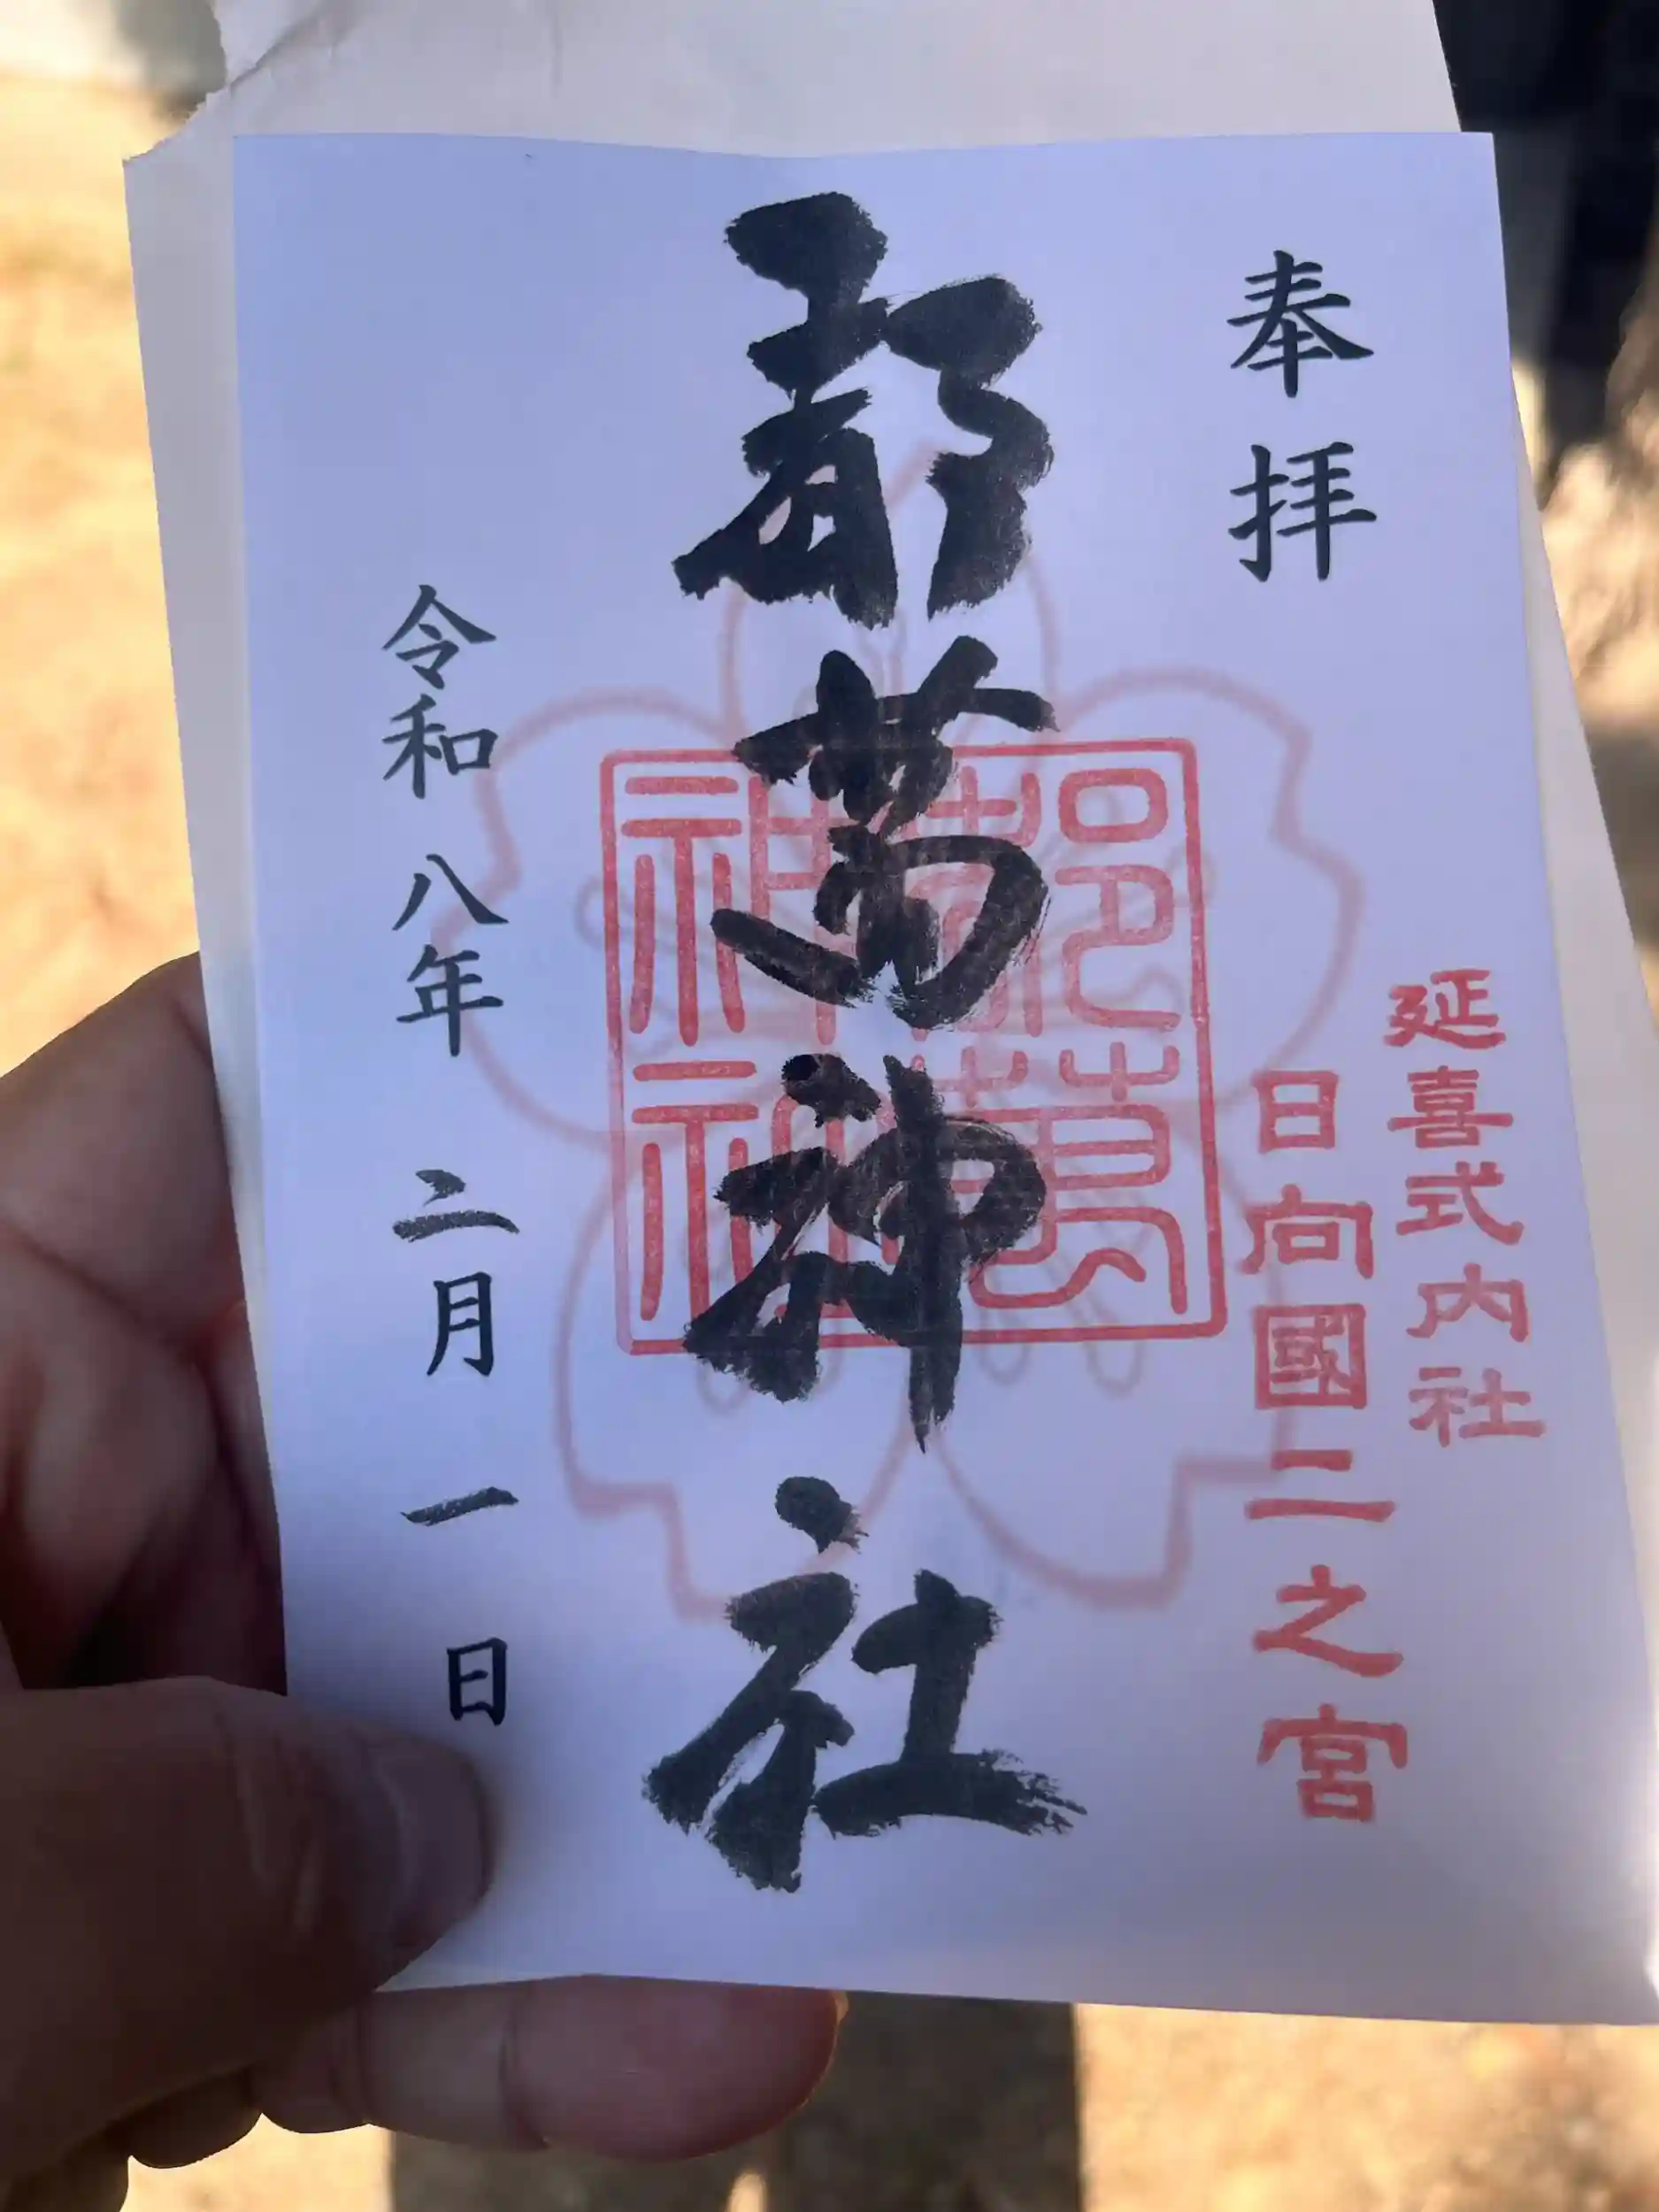 奉拝
延喜式内社
日向國二之宮
都萬神社
都萬
神社
令和八年二月一日